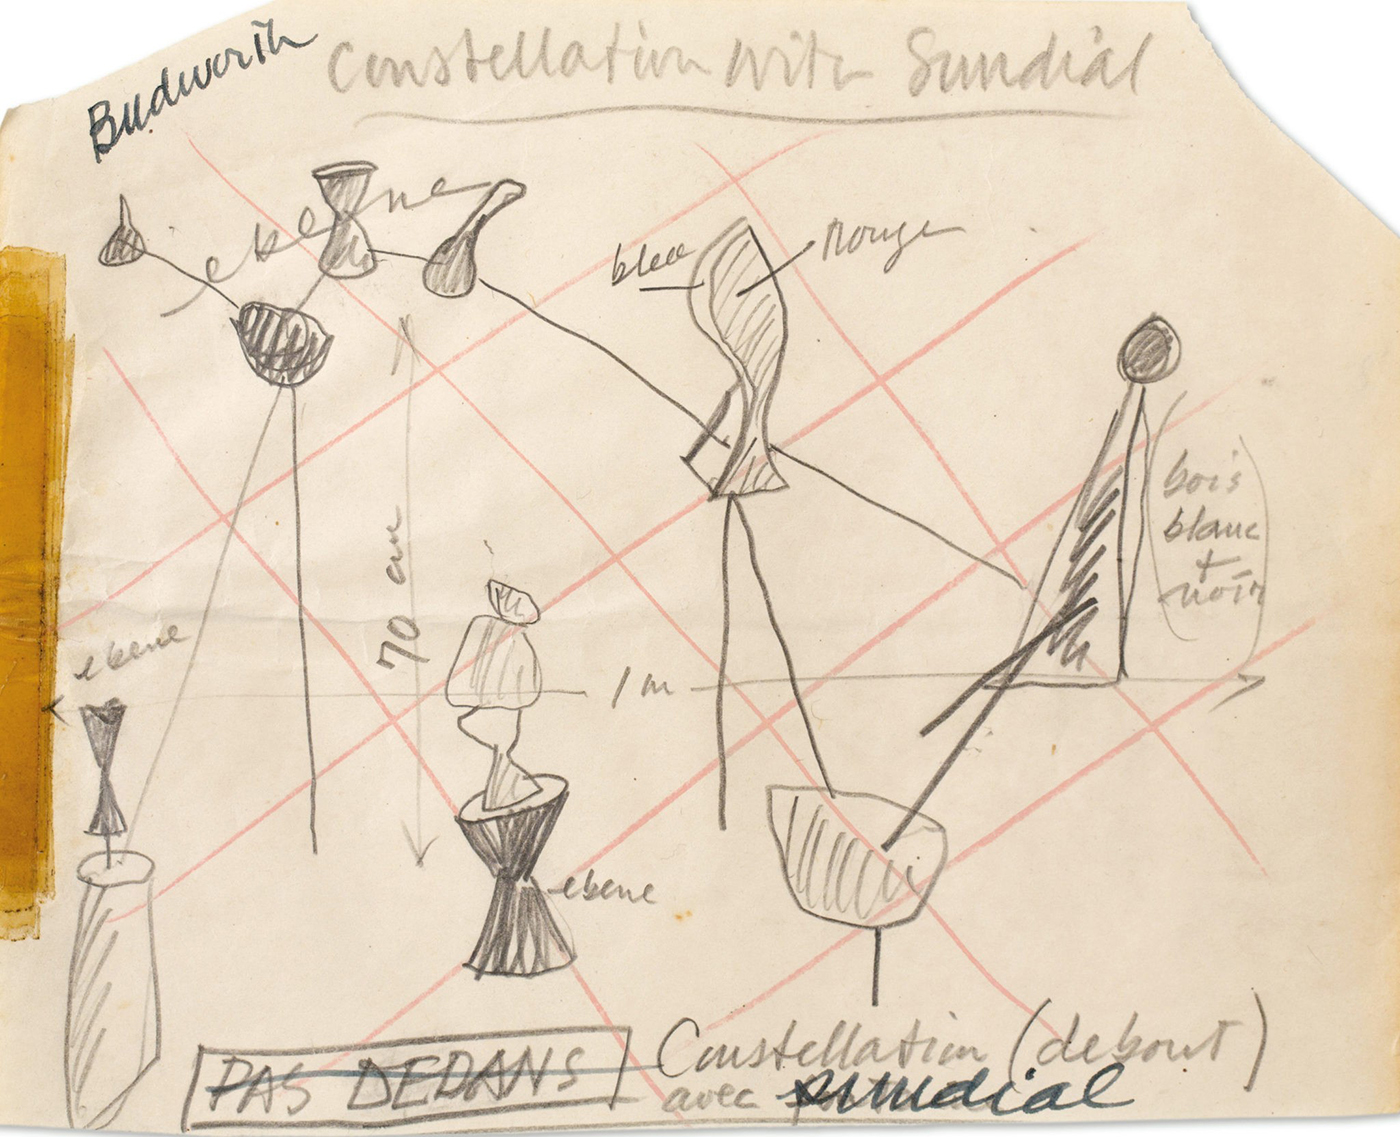 Budworth
Constellation with Sundial
ebene
bleu
rouge
bois
blanc
+
noir
70 cm
ebene
1 m
ebene
PAS DEDANS
Constellation (debout)
avec sundial